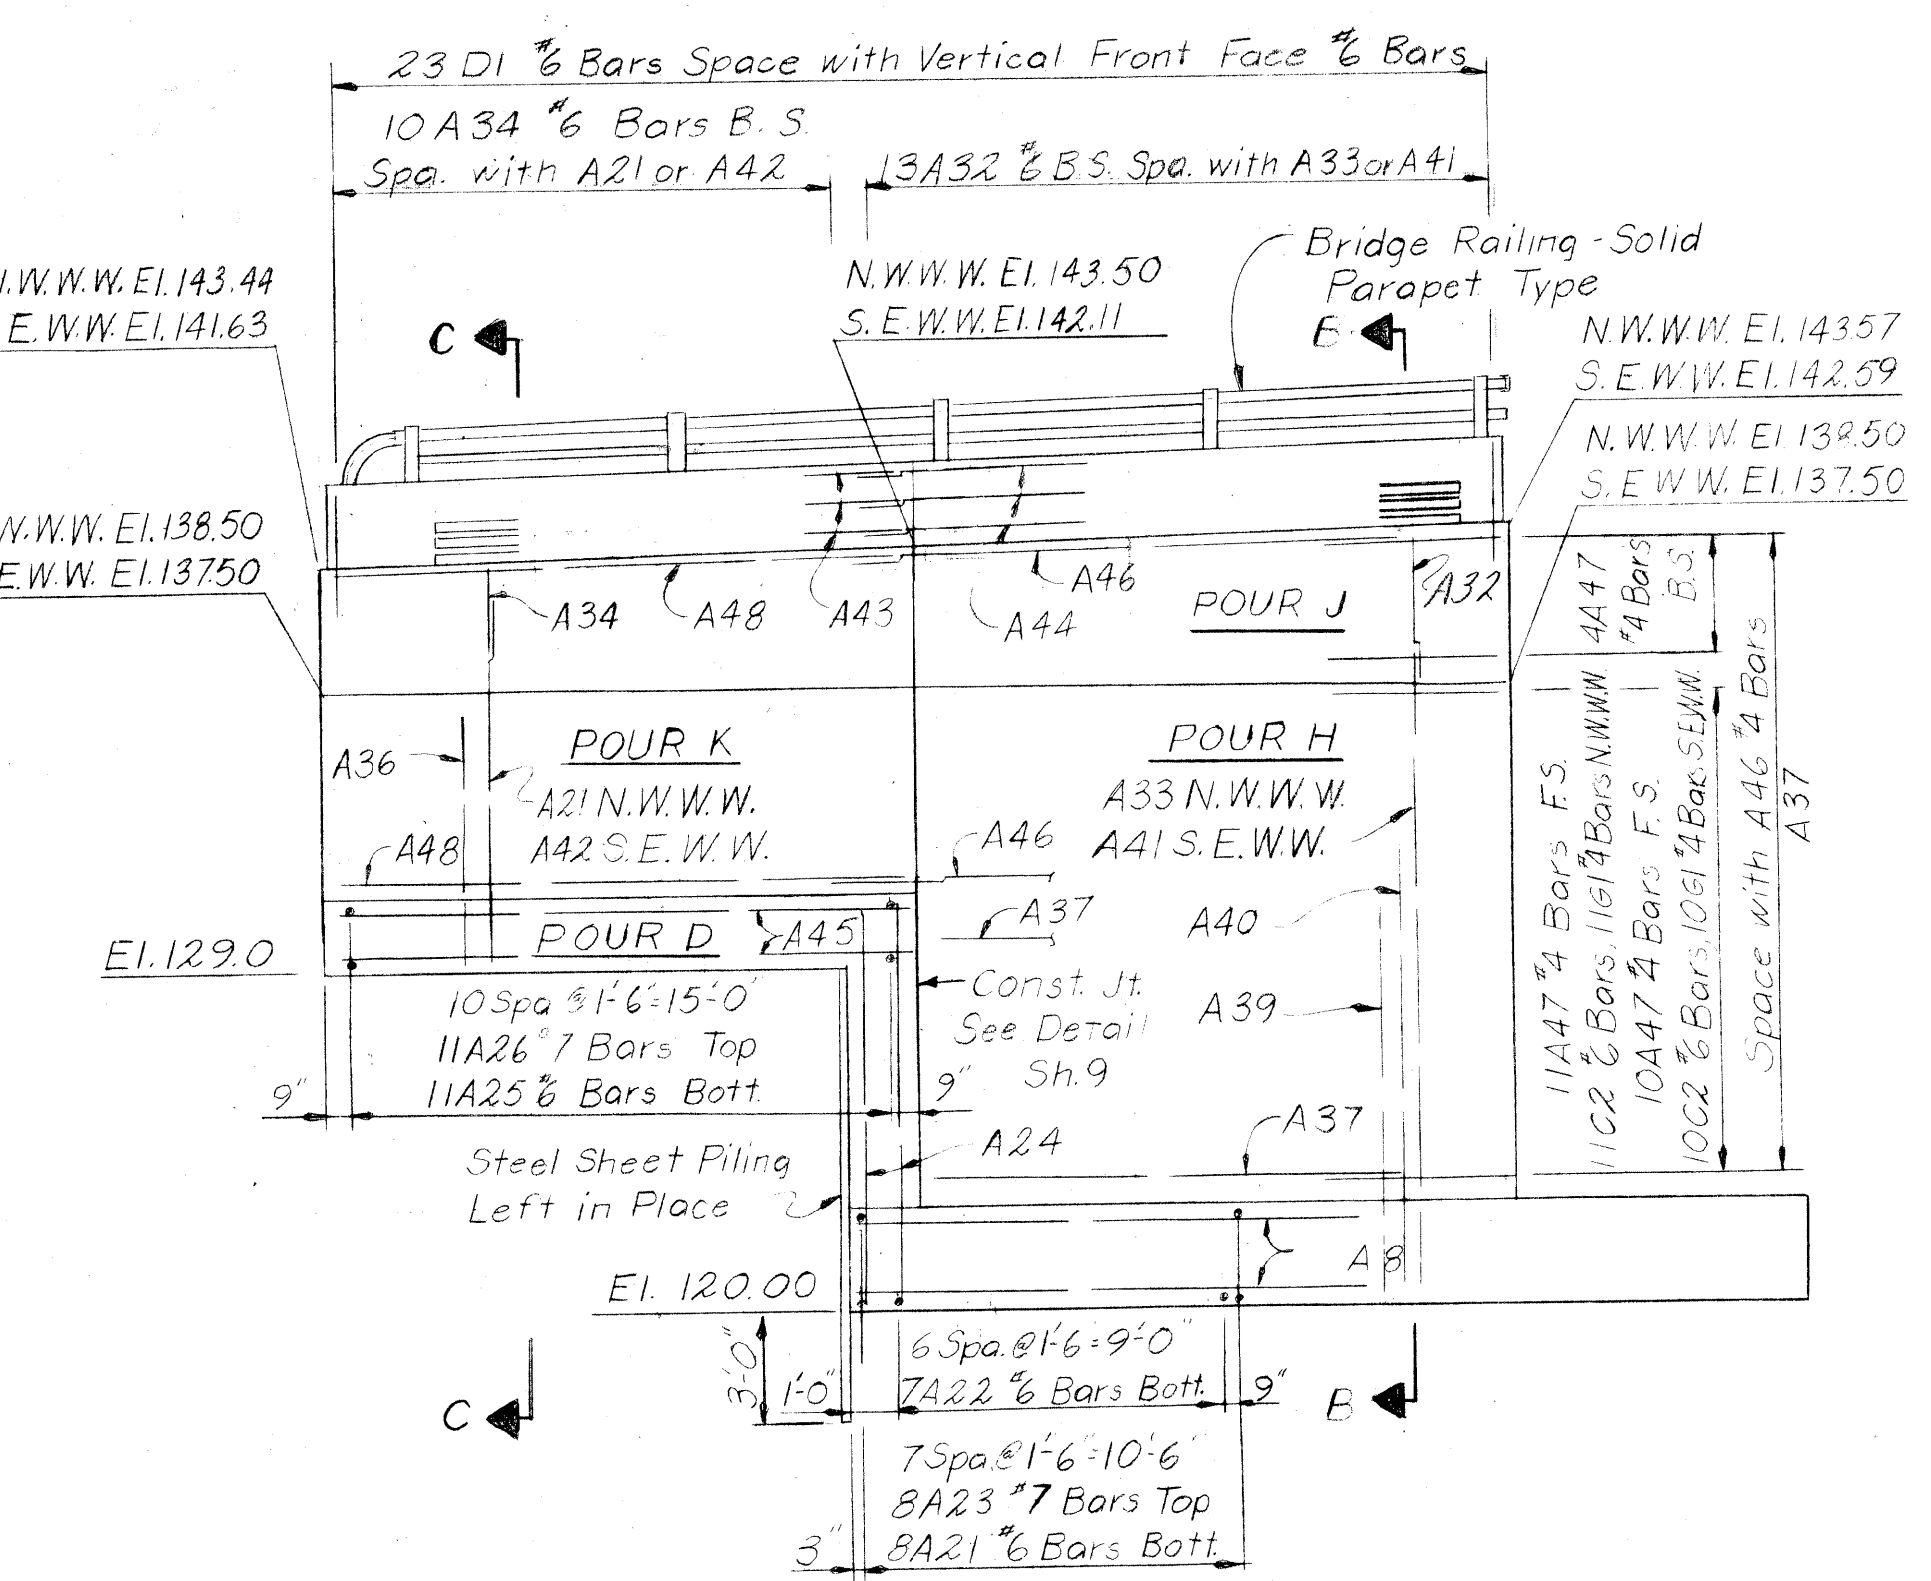 23 D1 #6 Bars Space with Vertical Front Face #6 Bars
10 A34 #6 Bars B. S.
Spa. with A21 or A42
13A32 #6 B.S. Spa. with A33 or A41
Bridge Railing - Solid
Parapet Type
.W.W.W. El. 143.44
E.W.W. El. 141.63
N.W.W.W. El. 143.50
S.E.W.W. El. 142.11
N.W.W.W. El. 143.57
S.E.W.W. El. 142.59
N.W.W.W. El. 138.50
S.E.W.W. El. 137.50
N.W.W. El. 138.50
E.W.W. El. 137.50
C
B
A34
A48
A43
A44
A46
POUR J
A32
4A47
#4 Bars
B.S.
A36
POUR K
A21 N.W.W.W.
A42 S.E.W.W.
POUR H
A33 N.W.W.W.
A41 S.E.W.W.
A48
A46
A37
A40
POUR D
A45
El. 129.0
Const. Jt.
See Detail
Sh. 9
A39
10 Spa @ 1'-6"=15'-0"
11A26 #7 Bars Top
11A25 #6 Bars Bott.
9"
9"
A24
A37
Steel Sheet Piling
Left in Place
A8
El. 120.00
11A47 #4 Bars F.S.
11C2 #6 Bars, 11G1 #4 Bars N.W.W.W.
10A47 #4 Bars F.S.
10C2 #6 Bars, 10G1 #4 Bars S.E.W.W.
Space with A46 #4 Bars
A37
3'-0"
1'-0"
6 Spa. @ 1'-6=9'-0"
7A22 #6 Bars Bott.
9"
C
B
7 Spa. @ 1'-6"=10'-6"
8A23 #7 Bars Top
8A21 #6 Bars Bott.
3"